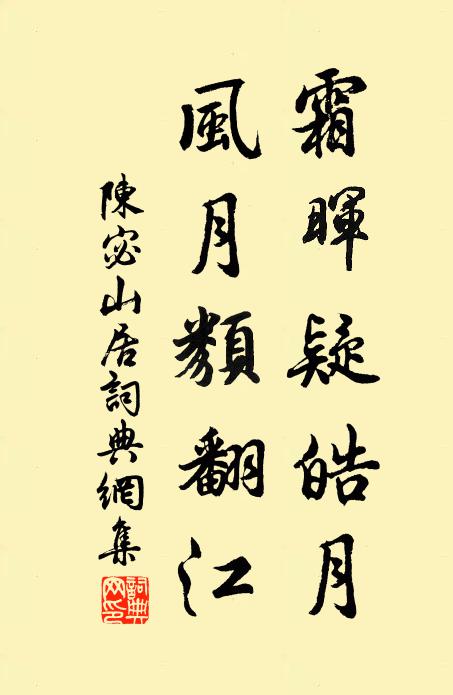 霜暉疑皓月
風月類翻江
陳宓山居詞典網集
詞典网印